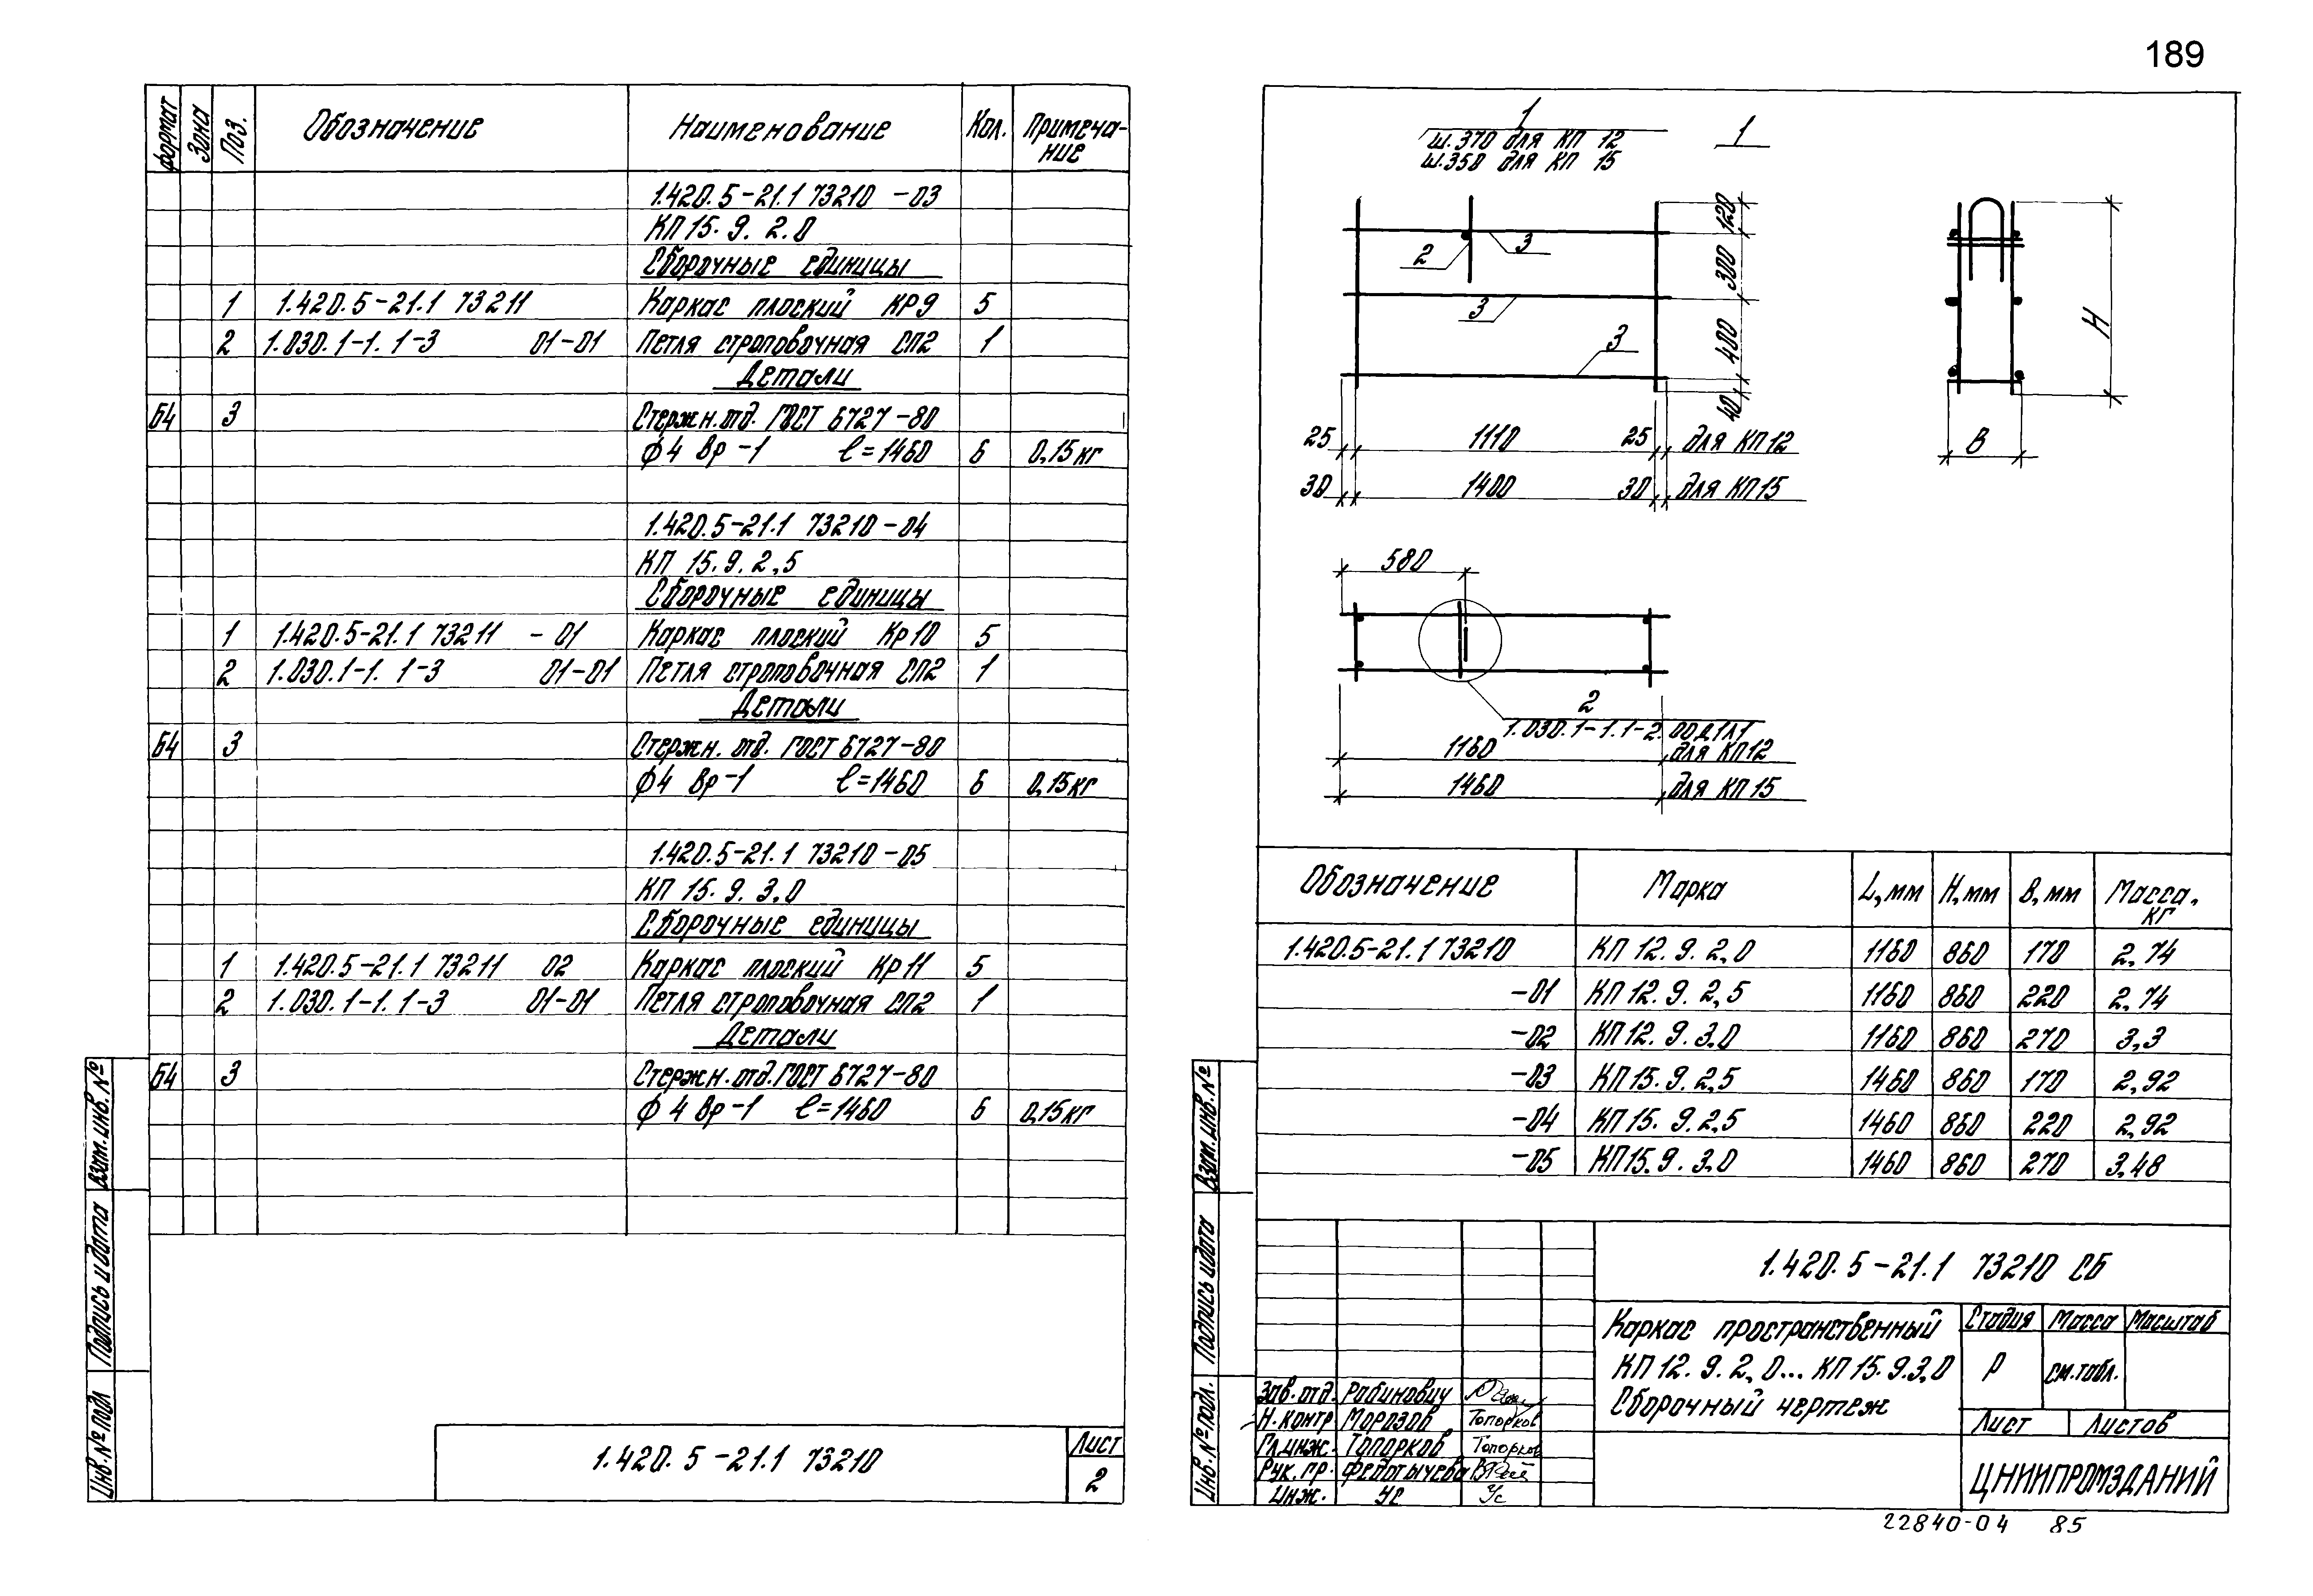 189
Формат Зона Поз. Обозначение Наименование Кол. Примеча-
ние
1.420.5-21.1 73210 -03
КП 15. 9. 2.0
Сборочные единицы
1 1.420.5-21.1 73211 Каркас плоский КР9 5
2 1.030.1-1. 1-3 01-01 Петля строповочная СП2 1
Детали
Б4 3 Стержн.отд. ГОСТ 6727-80
ф4 Вр-1 ℓ=1460 6 0,15кг
1.420.5-21.1 73210-04
КП 15.9.2,5
Сборочные единицы
1 1.420.5-21.1 73211 - 01 Каркас плоский Кр10 5
2 1.030.1-1. 1-3 01-01 Петля строповочная СП2 1
Детали
Б4 3 Стержн. отд. ГОСТ 6727-80
ф4 Вр-1 ℓ=1460 6 0,15кг
1.420.5-21.1 73210-05
КП 15. 9. 3.0
Сборочные единицы
1 1.420.5-21.1 73211 02 Каркас плоский Кр11 5
2 1.030.1-1. 1-3 01-01 Петля строповочная СП2 1
Детали
Б4 3 Стержн.отд.ГОСТ 6727-80
ф 4 Вр-1 ℓ=1460 6 0,15кг
Взам.инв.№
Подпись и дата
Инв.№подл
1.420. 5-21.1 73210
Лист
2
1
ш.370 для КП 12
ш.350 для КП 15
1
2
3
3
3
120
300
400
40
H
B
25 1110 25 для КП12
30 1400 30 для КП15
580
2
1.030.1-1.1-2. 00Д1Л1
1160 для КП12
1460 для КП 15
Обозначение Марка L,мм H,мм B,мм Масса,
кг
1.420.5-21.1 73210 КП 12. 9. 2,0 1160 860 170 2,74
-01 КП 12. 9. 2,5 1160 860 220 2,74
-02 КП 12. 9. 3.0 1160 860 270 3,3
-03 КП 15. 9. 2,5 1460 860 170 2,92
-04 КП 15. 9. 2,5 1460 860 220 2,92
-05 КП15. 9. 3.0 1460 860 270 3,48
Взам.инв.№
Подпись и дата
Инв.№подл.
1.420. 5-21.1 73210 СБ
Каркас пространственный
КП 12. 9. 2, 0... КП 15.9.3,0
Сборочный чертеж
Стадия Масса Масштаб
Р см.табл.
Лист Листов
ЦНИИПРОМЗДАНИЙ
Зав.отд. Рабинович
Н.контр Морозов Топорков
Гл.инж. Топорков Топорков
Рук.гр. Федотычева
Инж. Ус Ус
22840-04 85